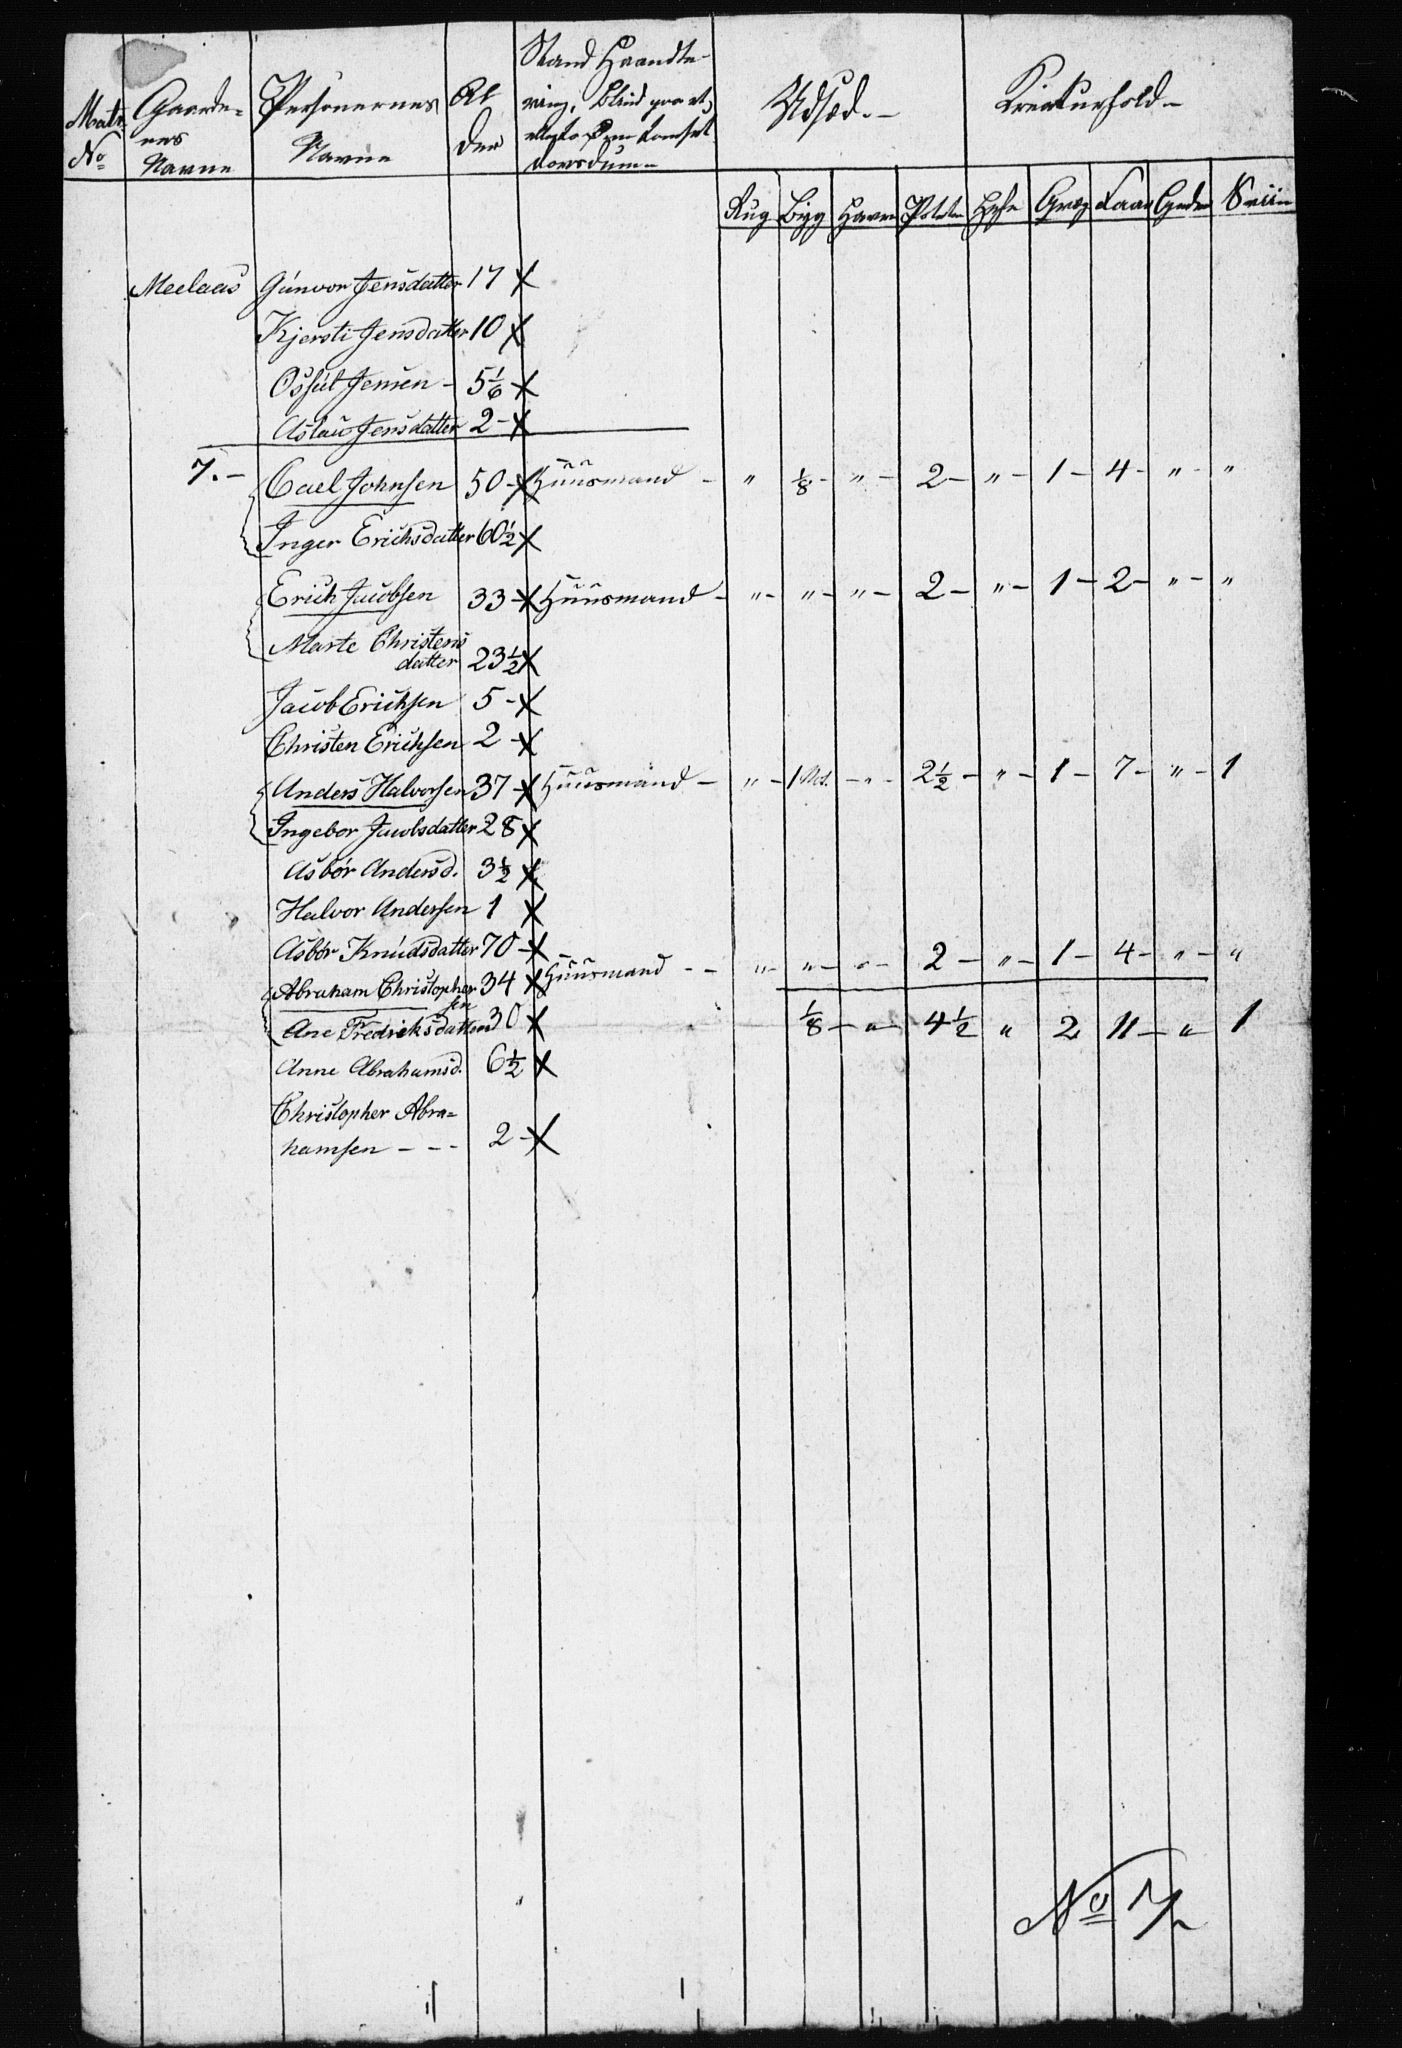 Matr No
Gaarde-
nes
Navne
Personernes
Navne
Al
der
Stand Haandte-
ring, Blind
Udsæd. -
Kreaturhold -
Rug Byg Havre Poteter Heste Qvæg Faar Geder Sviin
Meelaas Gunvor Jensdatter 17 X
Kjersti Jensdatter 10 X
Ossul Jensen - 5 1/6 X
Aslau Jensdatter 2 - X
7. - Carl Johnsen 50 - X Huusmand - " 1/8 - " - 2 - " - 1 - 4 - " - "
Inger Erichsdatter 60 1/2 X
Erich Jacobsen 33 - X Huusmand - " - " - " - 2 - " - 1 - 2 - " - "
Marte Christens
datter 23 1/2 X
Jacob Erichsen 5 - X
Christen Erichsen 2 - X
Anders Halvorsen 37 - X Huusmand - " - 1 - " - 2 1/2 - " - 1 - 7 - " - 1
Ingebor Jacobsdatter 28 X
Asbør Andersd. 3 1/2 X
Halvor Andersen 1 X
Asbør Knudsdatter 70 - X
Abraham Christopher
sen 34 X Huusmand - - " - " - " - 2 - " - 1 - 4 - " - "
Ane Fredriksdatter 30 X 1/8 - " - 4 1/2 " 2 11 - " - 1
Anne Abrahamsd. 6 1/2 X
Christopher Abra=
hamsen - - - 2 - X
No 7